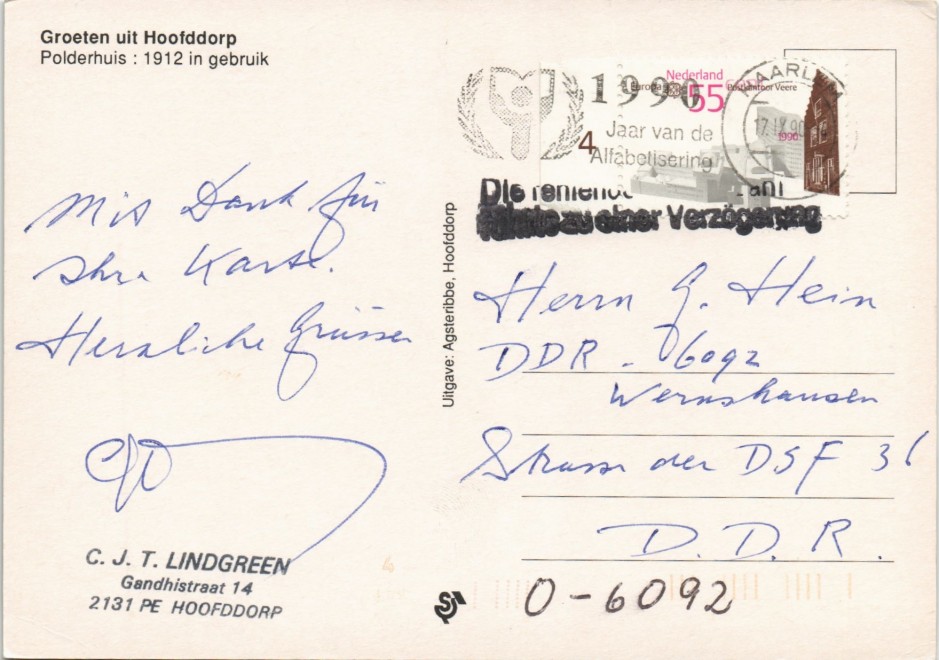 Groeten uit Hoofddorp
Polderhuis : 1912 in gebruik
Mit Dank für
Ihre Karte.
Herzliche Grüsse
C. J. T. LINDGREEN
Gandhistraat 14
2131 PE HOOFDDORP
Uitgave: Agsteribbe, Hoofddorp
Nederland
55
Europa
Postkantoor Veere
1990
1990
4
Jaar van de
Alfabetisering
HAARL
17.IX.90
Die fehlende
führte zu einer Verzögerung
Herrn G. Hein
DDR - 6092
Wernshausen
Strasse der DSF 36
D. D. R.
O-6092